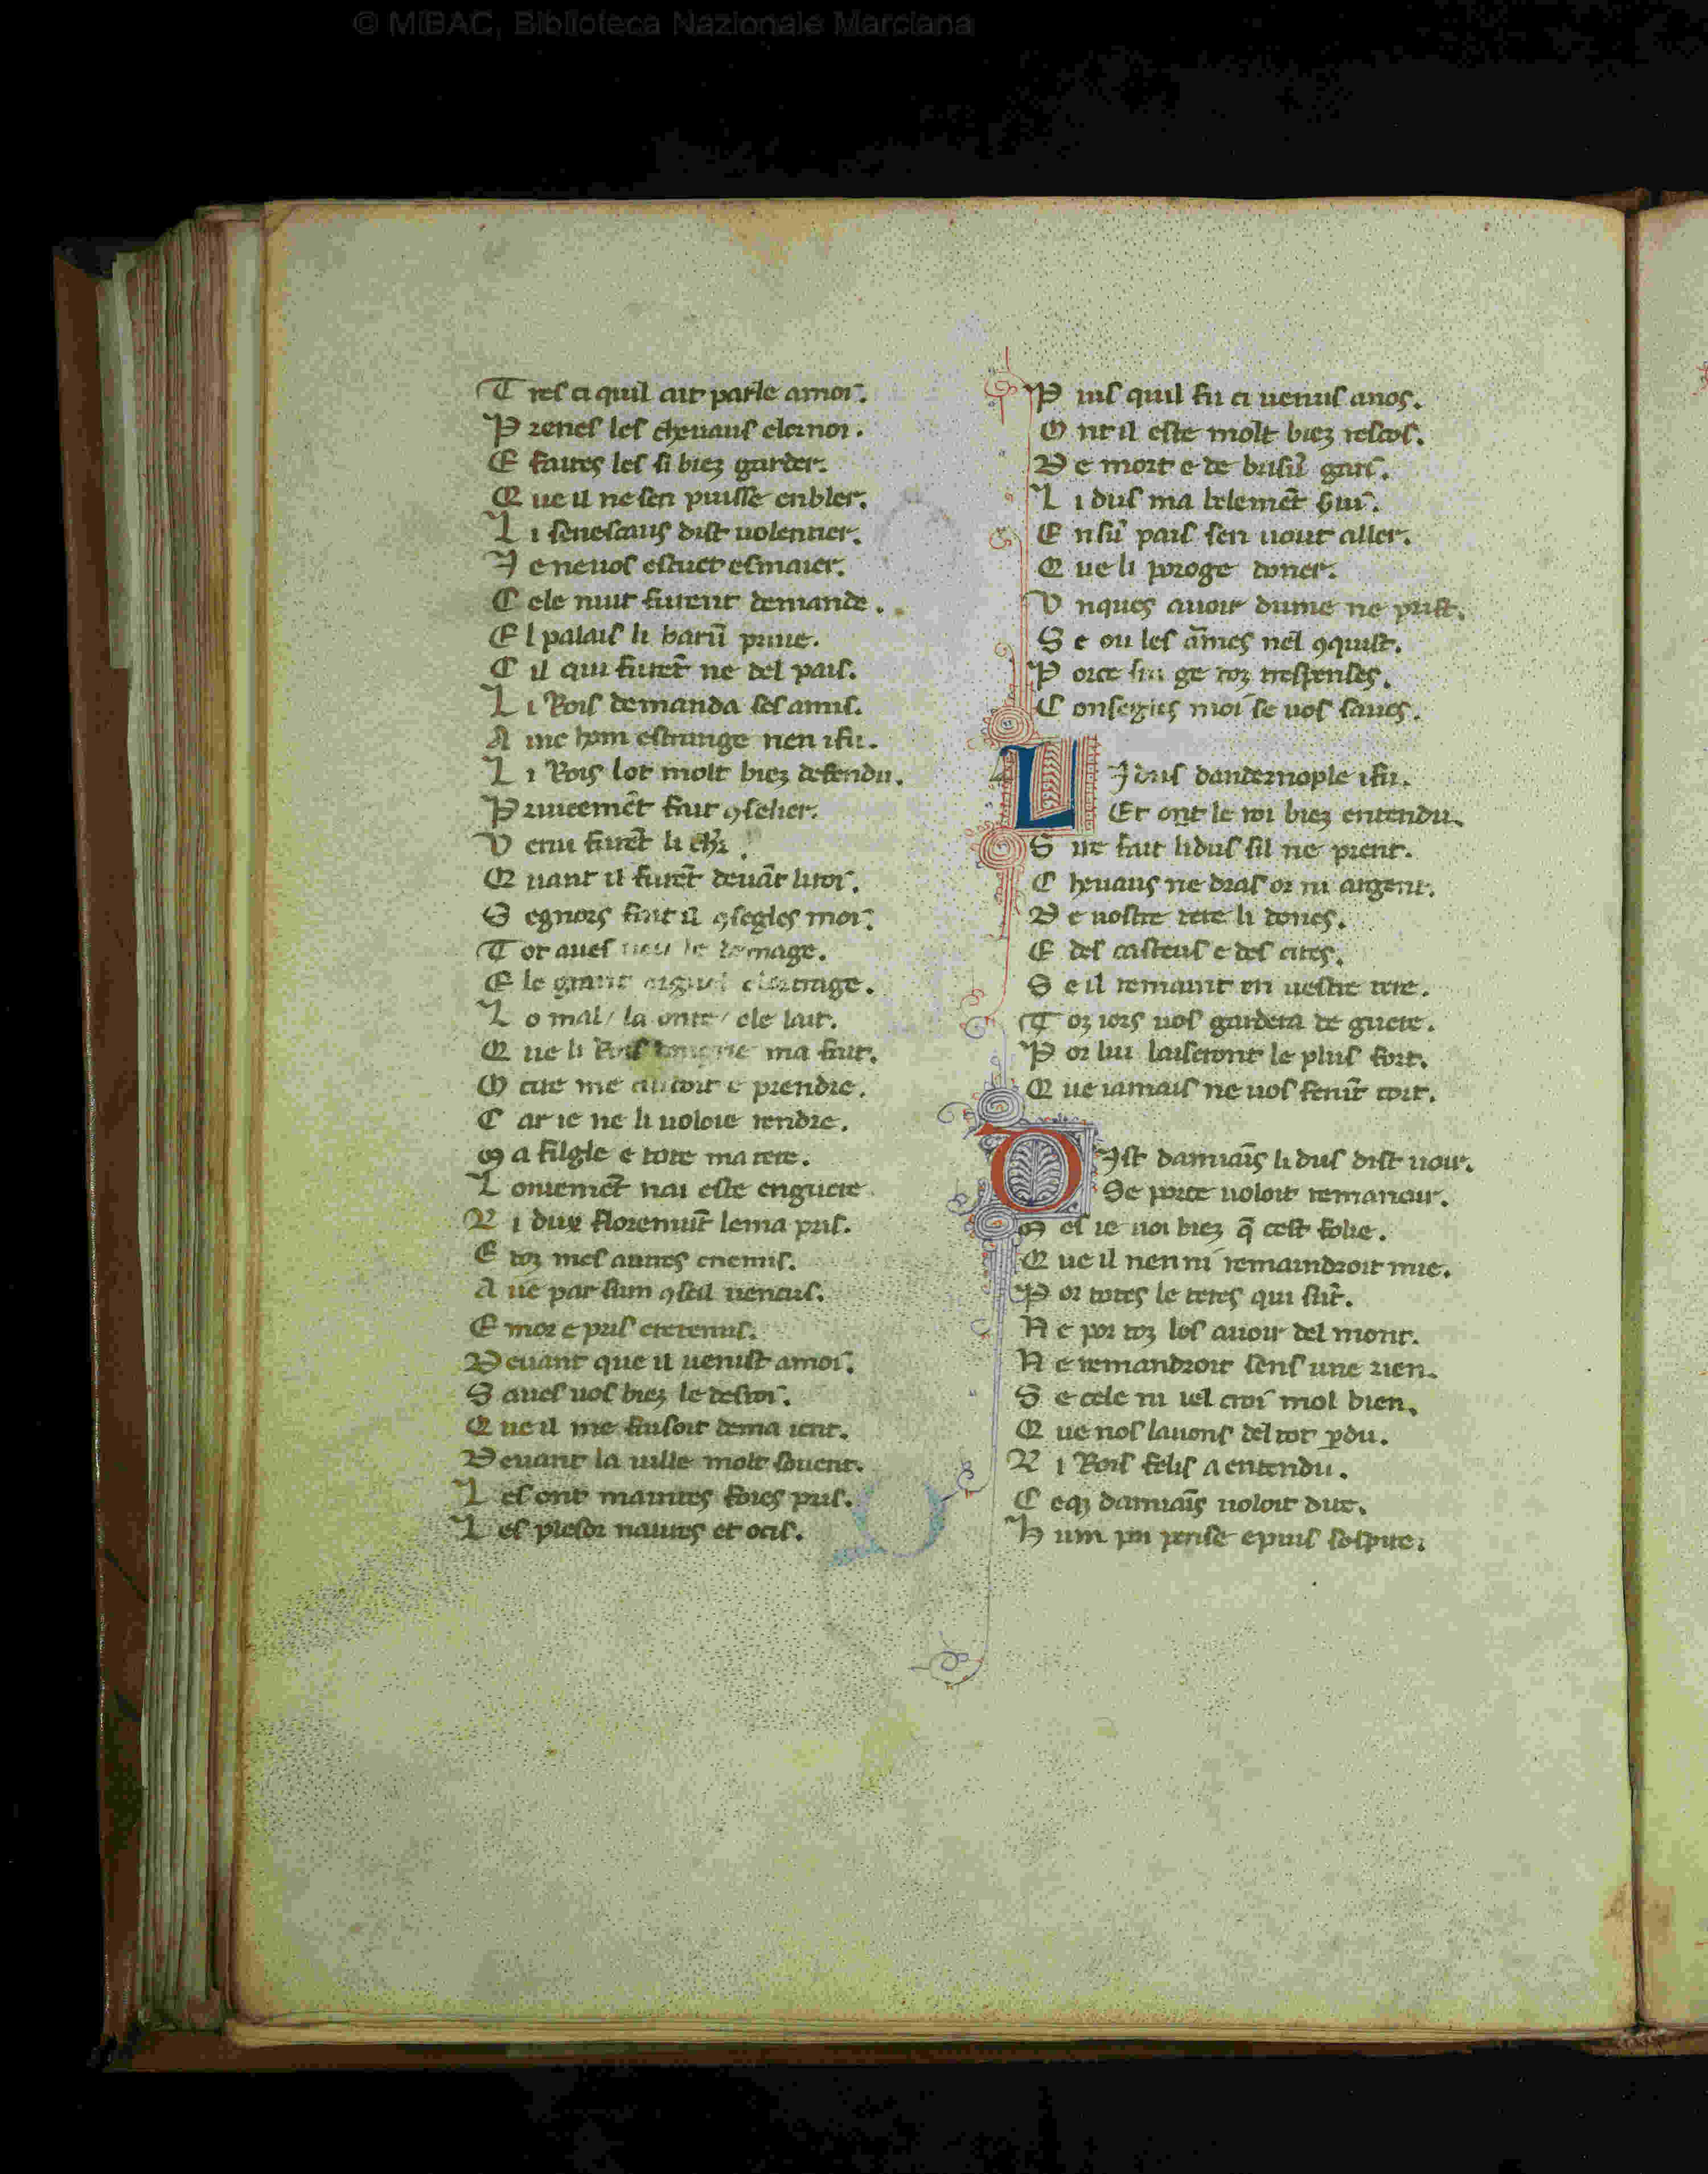 © MiBAC, Biblioteca Nazionale Marciana
T res ci quil air parle amoi.
P renes les cheuaus elernoi.
E faites les si biez garder.
Q ue il ne sen puisse enbler.
L i senescaus dist uolentier.
J e neuos estuet esmaier.
C ele nuit furent demande.
E l palais li barũ priue.
C il qui furẽt ne del pais.
L i Rois demanda ses amis.
A inc hom estrange nen i fu.
L i Rois lot molt biez defendu.
P riueemẽt fait ꝯselier.
V enu furẽt li chr̃.
Q uant il furẽt deuãt liroi.
S egnors fait il ꝯsegles moi.
T ot aues le domage.
E le grant
L o mal / la onte / ele lait.
Q ue li Rois ma fait.
O cire me e prendre.
C ar ie ne li uoloie rendre.
M a filgle e tote ma tere.
L oniemẽt nai este en guere
R i dux floremũt lema pris.
E toz mes autres enemis.
A ue par sum ꝯseil uencus.
E mor e pris e retenus.
D euant que il uenist amoi.
S aues uos biez le desroi.
Q ue il me faisoit dema ient.
D euant la uille molt souent.
L es ont maintes foies pris.
L es plesor naures et ocis.
P uis quil fu ci uenus anos.
O nt il este molt biez rescos.
D e mort e de
L i dus ma belemẽt
E nsũ pais sen uout aller.
Q ue li poroge doner.
V nques auoir dume ne prist.
S e ou les armes nel ꝯquist.
P orce sui ge toz trespenses.
C onsegies moi se uos saues.
L J dus dandernople i fu.
Et ont le roi biez entendu.
S ire fait lidus sil ne prent.
C heuaus ne dras or ni argent.
D e uostre tere li dones.
E des casteus e des cites.
S e il remaint en uestre tere.
T oz iors uos gardera de guere.
P or lui laiseront le plus fort.
Q ue iamais ne uos ferũt tort.
D Jst damiãs li dus dist uoir.
Se porce uoloit remanoir.
M es ie uoi biez q̃ cest folie.
Q ue il nen ni remaindroit mie.
P or totes le teres qui sũt.
N e por toz les auoir del mont.
N e remandroit sens une rien.
S e cele ni uel croi mol bien.
Q ue nos lauons del tot ꝑdu.
R i Rois felis a entendu.
C e qꝫ damiãs uoloit dire.
H um poi pense epuis sospire.